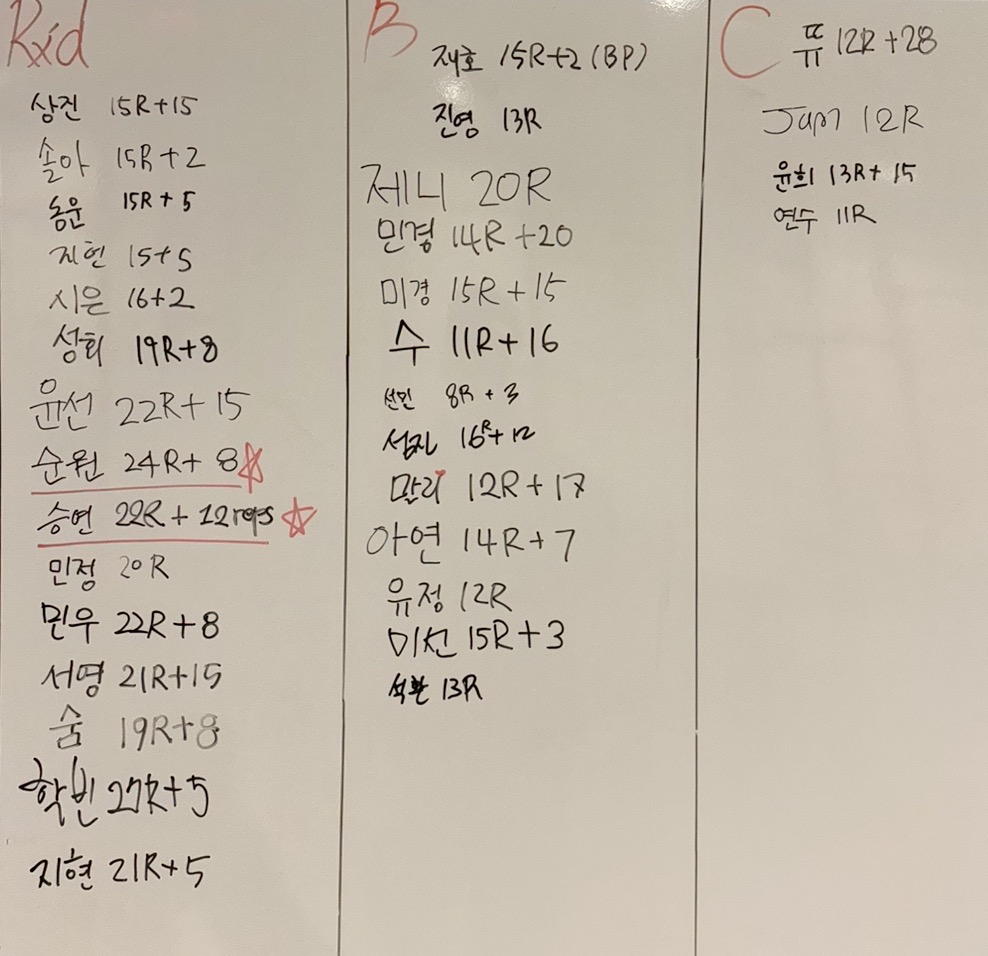 Rxd
상진 15R+15
솔아 15R+2
동운 15R+5
지헌 15+5
시은 16+2
성희 19R+8
윤선 22R+15
순원 24R+8
승연 22R+12reps
민정 20R
민우 22R+8
서영 21R+15
숨 19R+8
학빈 27R+5
지현 21R+5
B
재호 15R+2 (BP)
진영 13R
제니 20R
민경 14R+20
미경 15R+15
수 11R+16
선민 8R+3
섭지 16R+12
말리 12R+17
아연 14R+7
유정 12R
미선 15R+3
석환 13R
C
쮸 12R+28
12R
윤희 13R+15
연수 11R